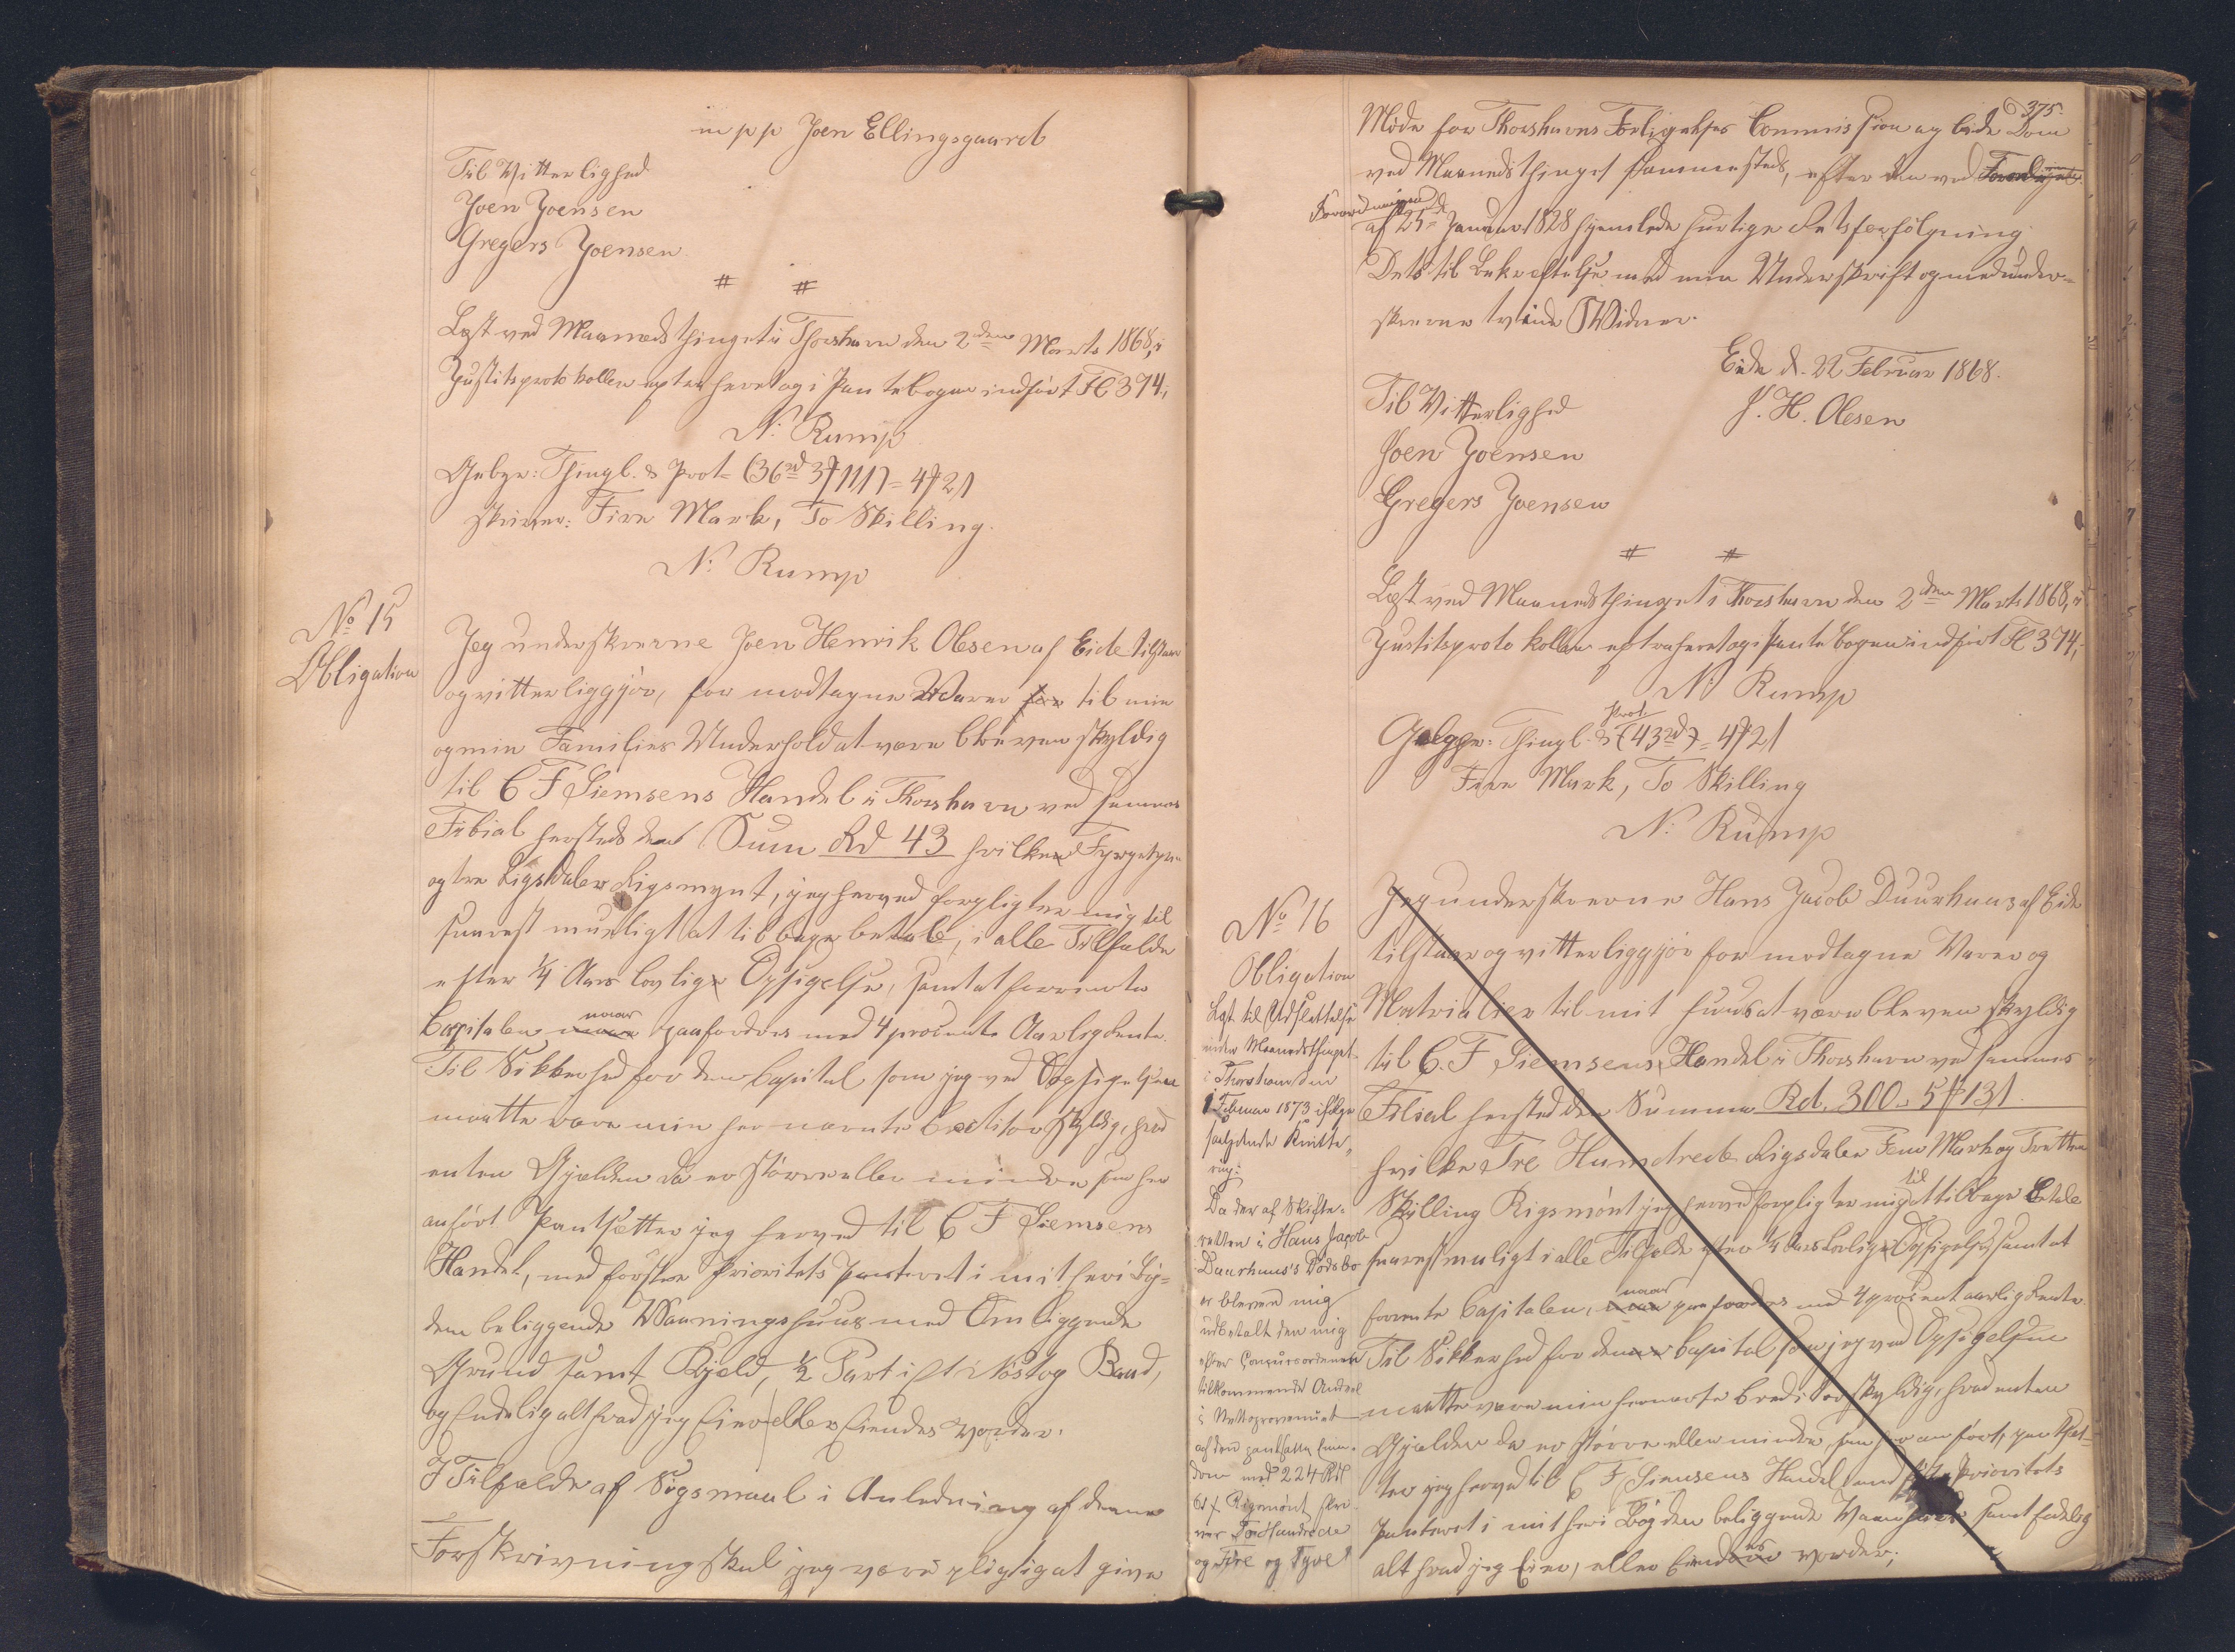 m p p Joen Ellingsgaard
Til Vitterlighed
Joen Joensen
Gregers Joensen.
# #
Læst ved Maanedsthinget i Thorshavn den 2den Marts 1868, i
Justitsprotokollen extraheret og i Pantebogen indført Fl 374,
N. Rump
Gebyr: Thingl. & Prot.
skriver: Fire Mark, To Skilling.
N. Rump
No 15
Obligation
Jeg underskrevne Joen Henrik Olesen af Eide tilstaar
og vitterliggjør, for modtagne Waarer for til min
og min Families Underhold at være bleven skyldig
til C F Siemsens Handel i Thorshavn ved sammes
Filial hersteds den Sum Rd 43 hvilken Fyrgetyve
og tre Rigsdaler Rigsmynt, jeg herved forpligter mig til
snarest muligt at tilbagebetale, i alle Tilfælde
efter 1/4 Aars lovlig Opsigelse, samt at forrente
Capitalen naar paafordres med 4 procents Aarlig Rente.
Til Sikkerhed for den Capital som jeg ved Opsigelsen
maatte være min her nævnte Creditor skyldig, hvad
enten Gjælden da er større eller mindre som her
anført Pantsætter jeg herved til C F Siemsens
Handel, med første Prioritets Panteret i mit her i Byg-
den beliggende Waaningshuus med Omliggende
Grund samt Kjeld, 1/2 Part i et Nøst og Baad,
og Endelig alt hvad jeg Eier eller Eiendes vorder.
I Tilfælde af Søgsmaal i Anledning af denne
Forskrivning skal jeg være pligtig at give
375.
Møde for Thorshavns Forligelses Commission og lide Dom
ved Maanedsthinget sammesteds, efter den ved
Forordningen
af 25de Januar 1828 hjemlede hurtige Retsforfølgning.
Dets til Bekræftelse med min Underskrift og medunder-
skrevne tvende Widner.
Eide d. 22 Februar 1868.
Til Vitterlighed
J. H. Olesen
Joen Joensen
Gregers Joensen
# #
Læst ved Maanedsthinget i Thorshavn den 2den Marts 1868, i
Justitsprotokollen extraheret og i Pantebogen indført Fl 374,
N. Rump
Prot.
Gebyr: Thingl. & (43rd) =
Fire Mark, To Skilling
N. Rump
No 16
Obligation
Læst til Udslettelse
inden Maanedsthinget
i Thorshavn den
Februar 1873 ifølge
saalydende Kvitte-
ring:
Da der af Skifte-
retten i Hans Jacob
Duurhuus's Dødsbo
er bleven mig
udbetalt den mig
efter Concursordenen
tilkommende Andeel
i Nettoprovenuet
af den pantsatte Eien-
dom med 224 Rd
Rigsmønt skri-
ver To Hundrede
og Fire og Tyve
Jeg underskrevne Hans Jacob Duurhuus af Eide
tilstaar og vitterliggjør for modtagne Varer og
Matrialier til mit Huus at være bleven skyldig
til C. F Siemsens Handel i Thorshavn ved sammes
Filial hersted den Summa Rd. 300
hvilke Tre Hundrede Rigsdaler Fem Mark og Tretten
Skilling Rigsmønt jeg herved forpligter mig til at tilbage betale
snarest muligt i alle Tilfælde efter 1/4 Aars Lovlig Opsigelse, samt at
forrente Capitalen, naar paafordres med 4 procent aarlig Rente.
Til Sikkerhed for den Capital som jeg ved Opsigelsen
maatte være min hernævnte Creditor skyldig, hvad enten
Gjælden da er større eller mindre, som her anført, pantsæt-
ter jeg herved til C F Siemsens Handel med Prioritets
Panteret i mit her i Bygden beliggende samt Endelig
alt hvad jeg Eier, eller Eiendes vorder;